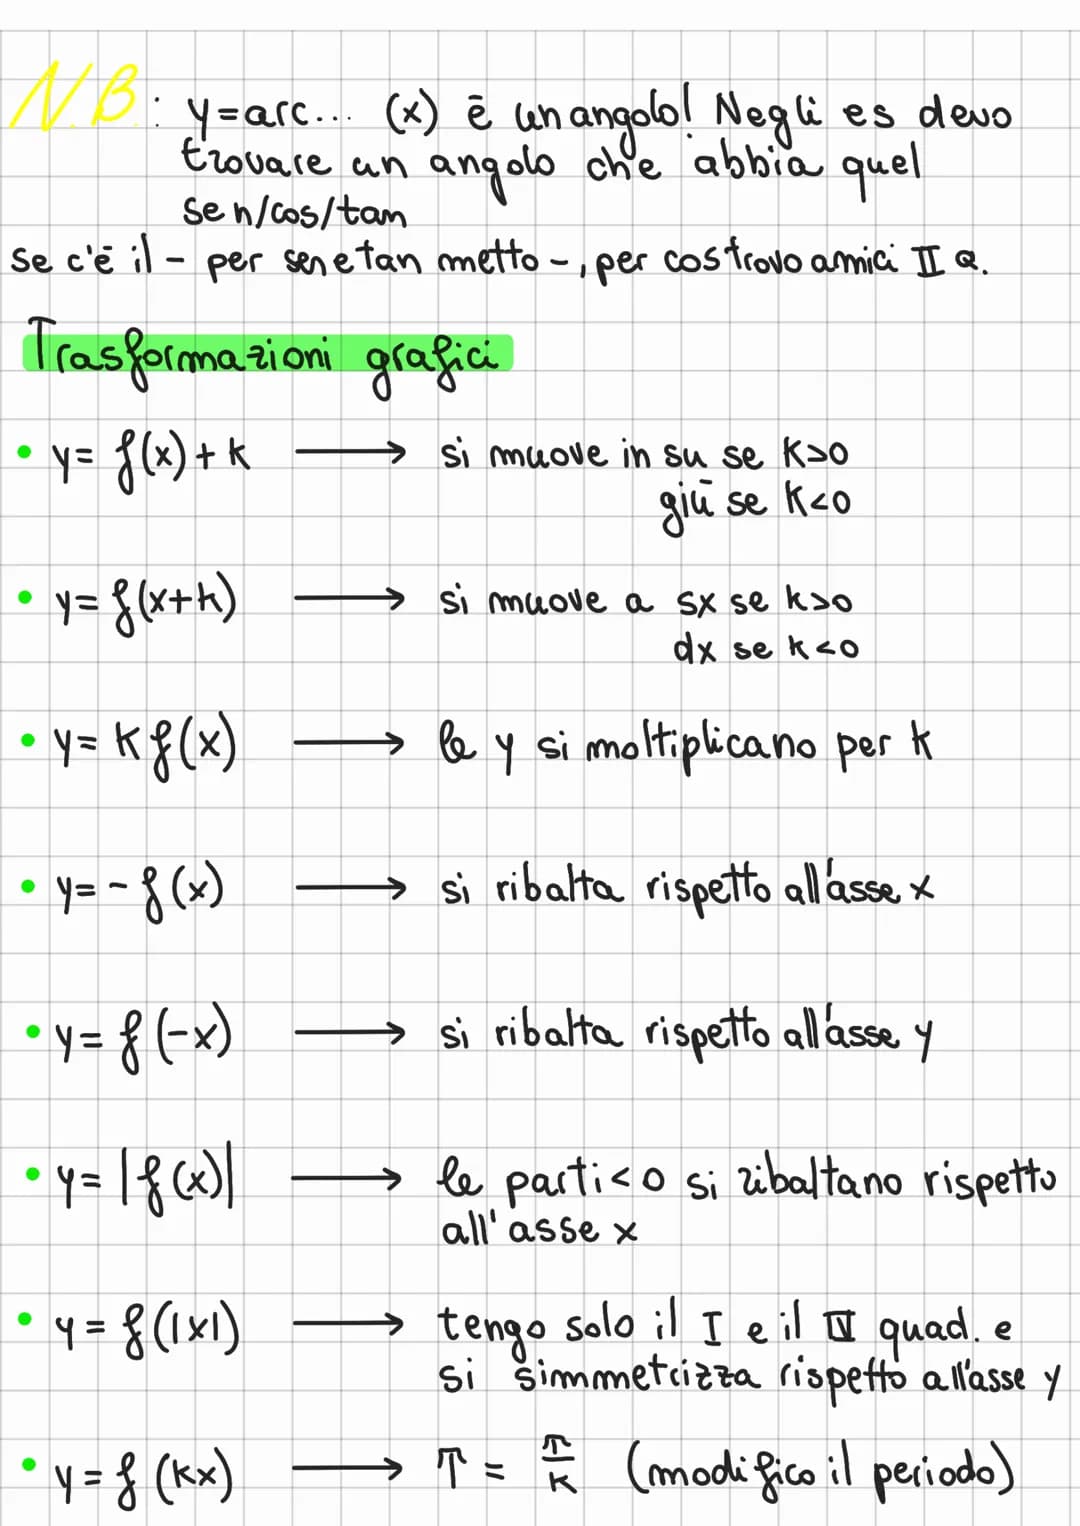 N.B.: y=arc... (x) è un angolo! Negli es devo
trovare un angolo che abbia quel
sen/cos/tan
se c'è il - per sen e tan metto -, per cos trovo amici II Q.
Trasformazioni grafici
• y= f(x)+k → si muove in su se K>0
giù se K<0
• y= f(x+k) → si muove a sx se k>0
dx se k<0
• y= K f(x) → le y si moltiplicano per k
• y= - f(x) → si ribalta rispetto all'asse x
• y= f(-x) → si ribalta rispetto all'asse y
• y= |f(x)| → le parti <0 si ribaltano rispetto
all'asse x
• y= f(|x|) → tengo solo il I e il IV quad. e
si simmetrizza rispetto all'asse y
• y= f(kx) → T = π/K (modifico il periodo)